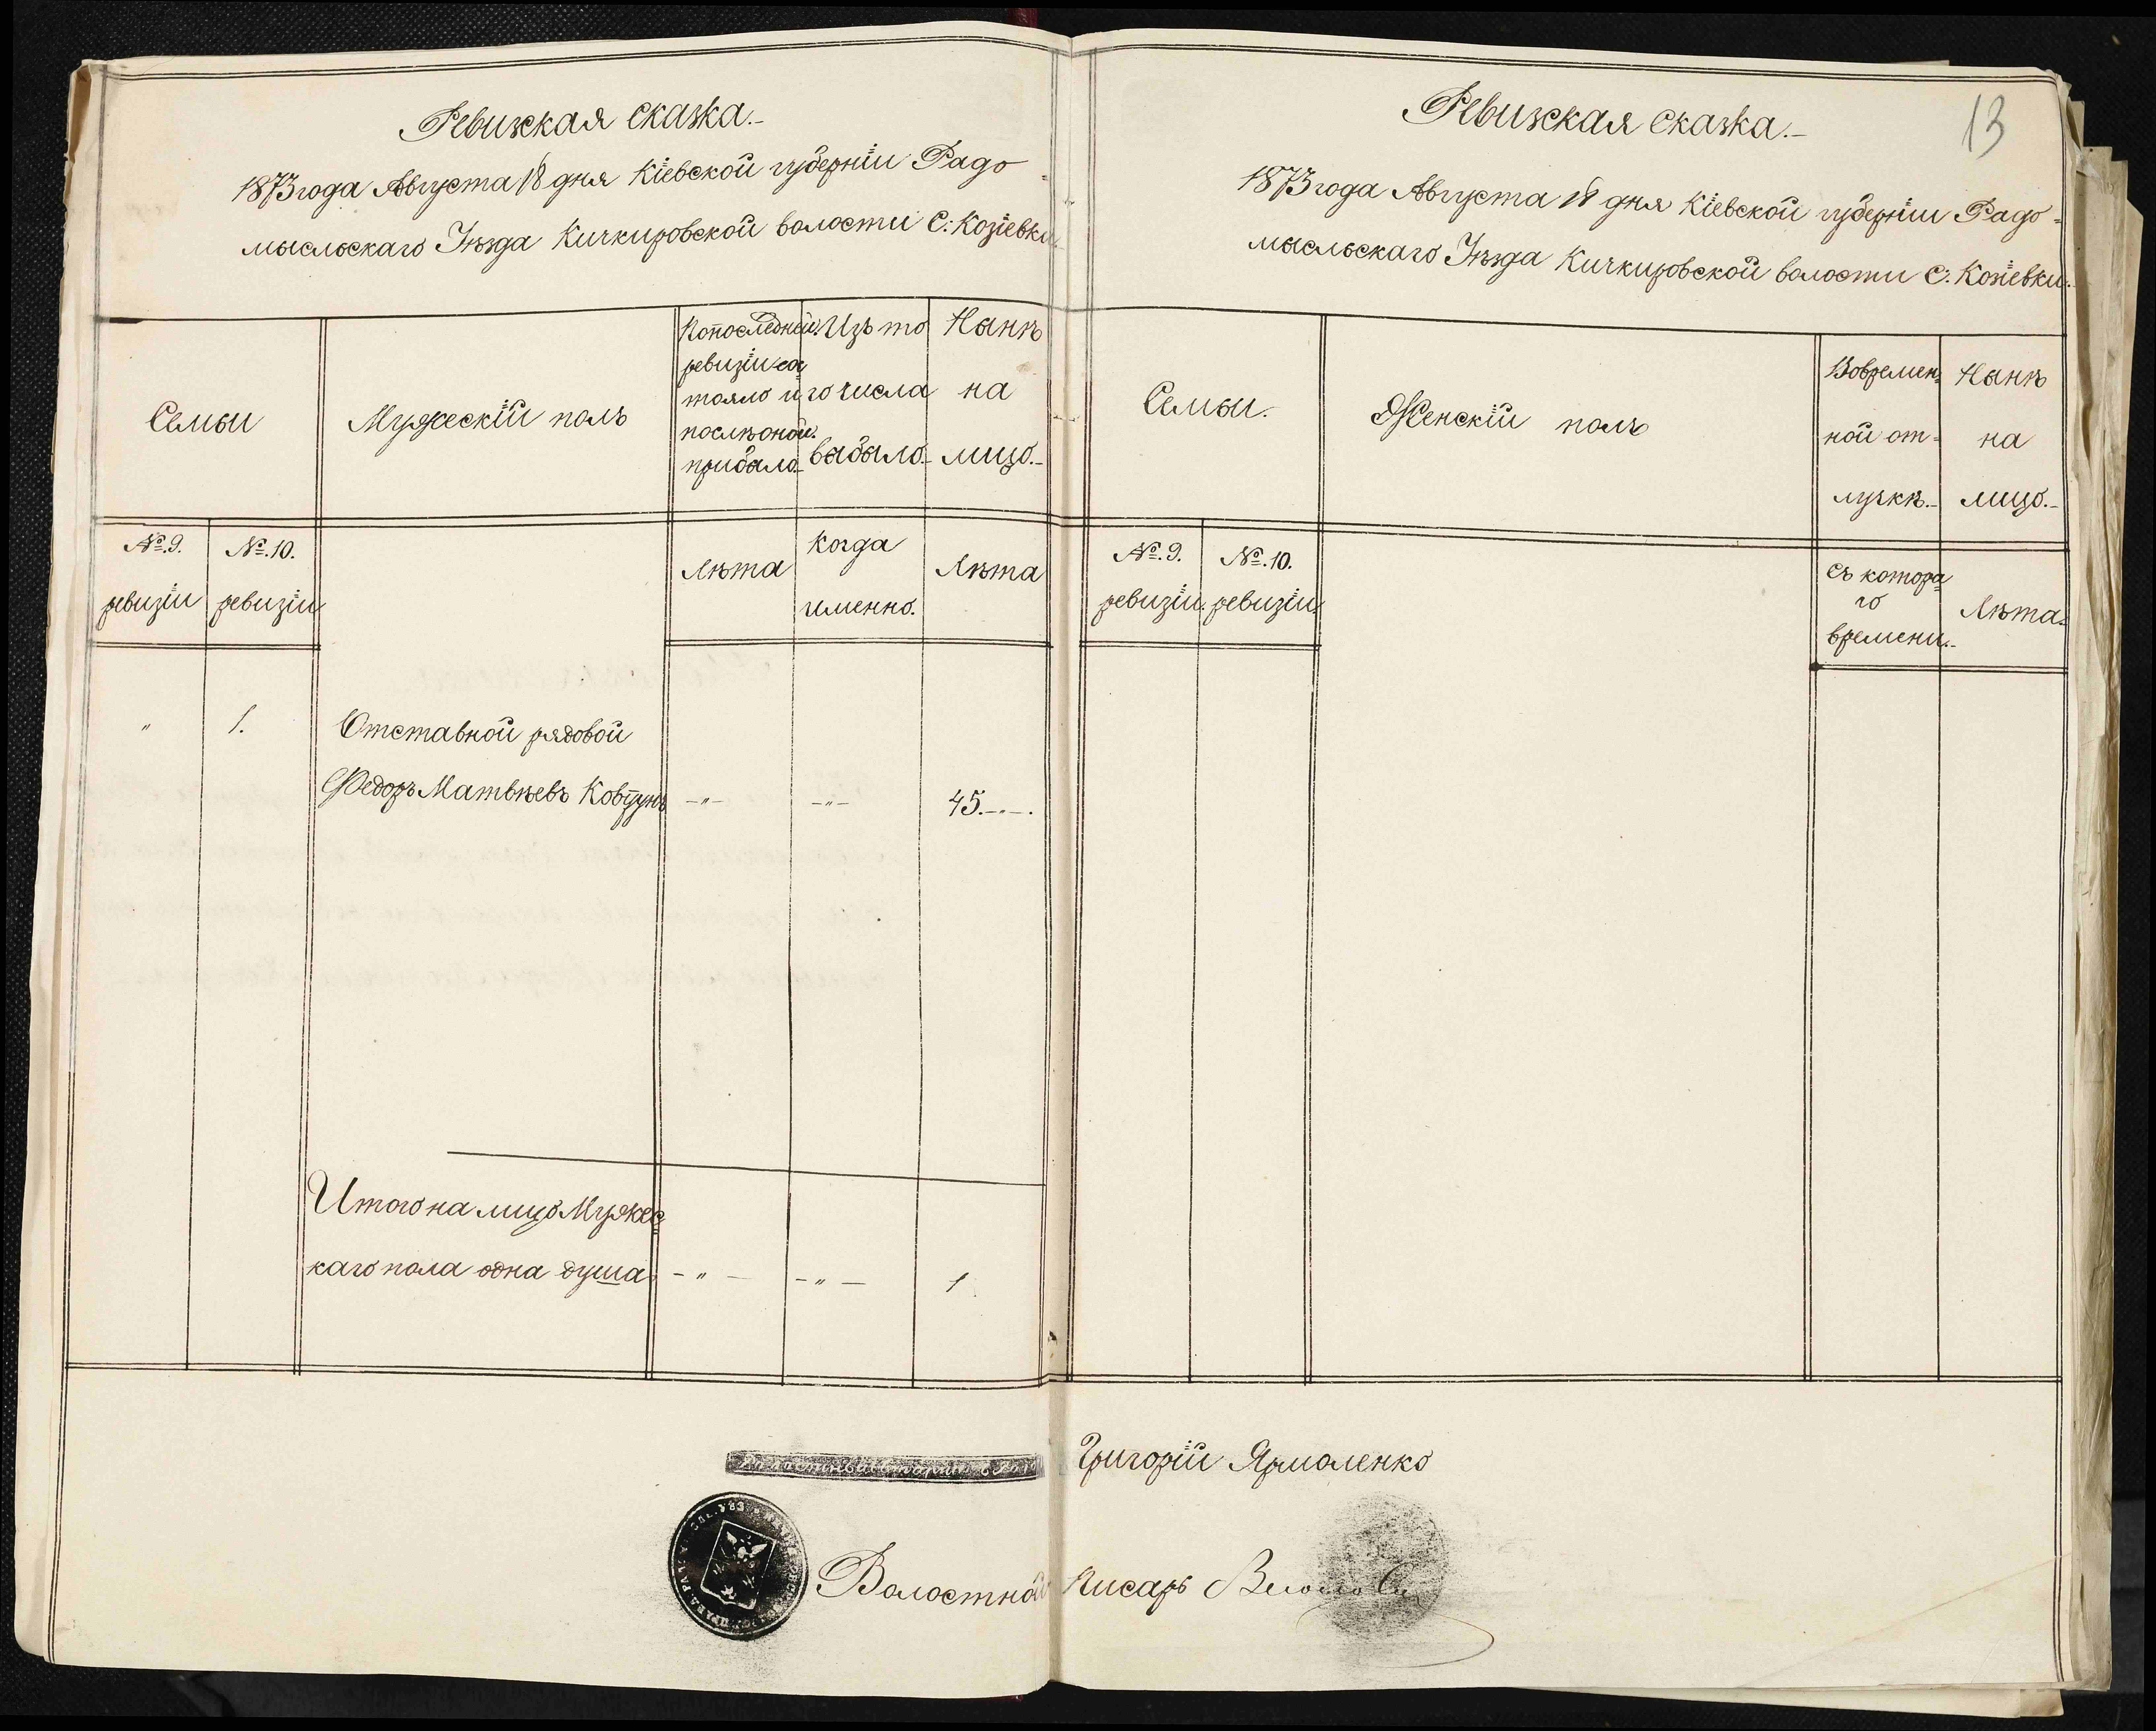 Ревизкая сказка.-
1873 года Августа 18 дня Кіевской губерніи Радо
мысльскаго Уѣзда Кичкировской волости С: Козіевки
Семьи
Мужескій полъ
Копоследней
ревизіи сос
тояло и
послѣ оной
прибыло
Изъ то
го числа
выбыло.-
Нынѣ
на
лицо.-
№.9.
ревизіи
№.10.
ревизіи
Лѣта
когда
именно.
Лѣта
„
1.
Отставной рядовой
Федоръ Матвѣевъ Ковтунъ -„- -„- 45.-„-.
Итого на лицо Мужес
каго пола одна душа -„- -„- 1
Волостной
13
Ревизская сказка.-
1873 года Августа 18 дня Кіевской губерніи Радо-
мысльскаго Уѣзда Кичкировской волости С: Козіевки.
Семьи.-
Женскій полъ
Вовремен-
ной от-
лучкѣ.-
Нынѣ
на
лицо.-
№.9.
ревизіи.
№.10.
ревизіи.
съ котора
го
времени.-
Лѣта.
Григорій Ярмоленко
писарь